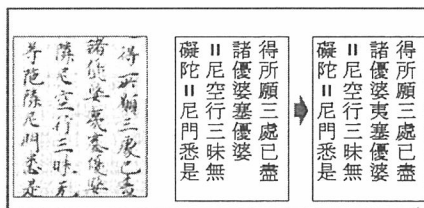 得所願三處已盡
諸優婆夷塞優婆
隣尼空行三昧无
㝵陀隣尼門悉是
得所願三處已盡
諸優婆塞優婆
〓尼空行三昧無
礙陀〓尼門悉是
得所願三處已盡
諸優婆夷塞優婆
〓尼空行三昧無
礙陀〓尼門悉是